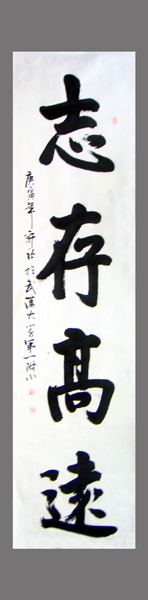 志存高遠
庚寅年
武漢大學第一附小